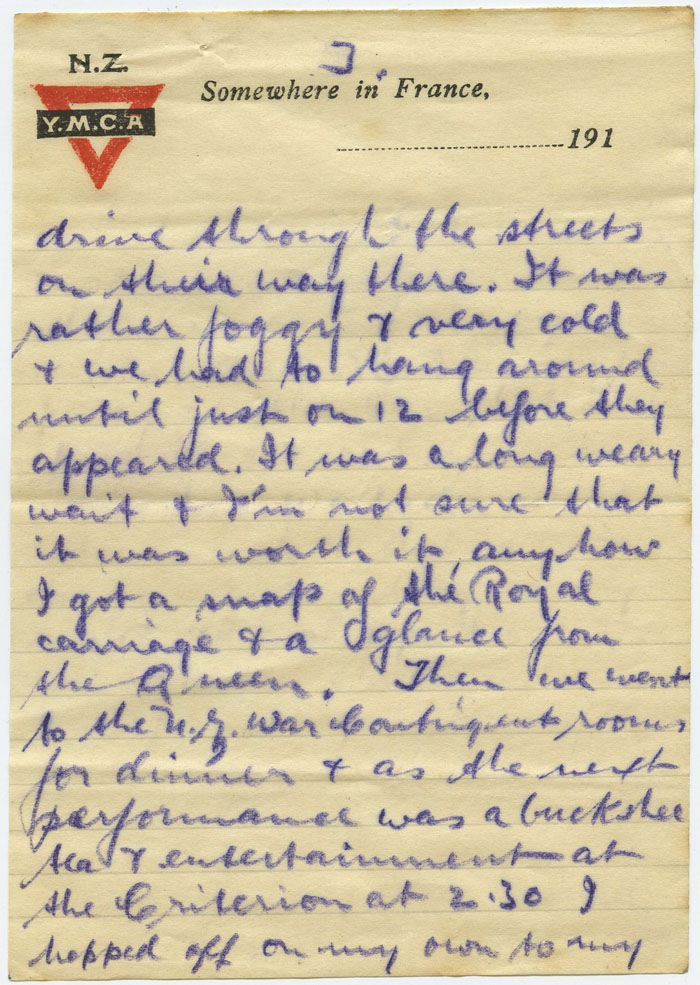 N.Z.
Y.M.C.A
3.
Somewhere in France,
191
drive through the streets
on their way there. It was
rather foggy & very cold
& we had to hang around
until just on 12 before they
appeared. It was a long weary
wait & I'm not sure that
it was worth it, anyhow
I got a snap of the Royal
carriage & a glance from
the Queen. Then we went
to the N.Z. War Contingent rooms
for dinner & as the next
performance was a buckshee
tea & entertainment at
the Criterion at 2.30 I
hopped off on my own to my